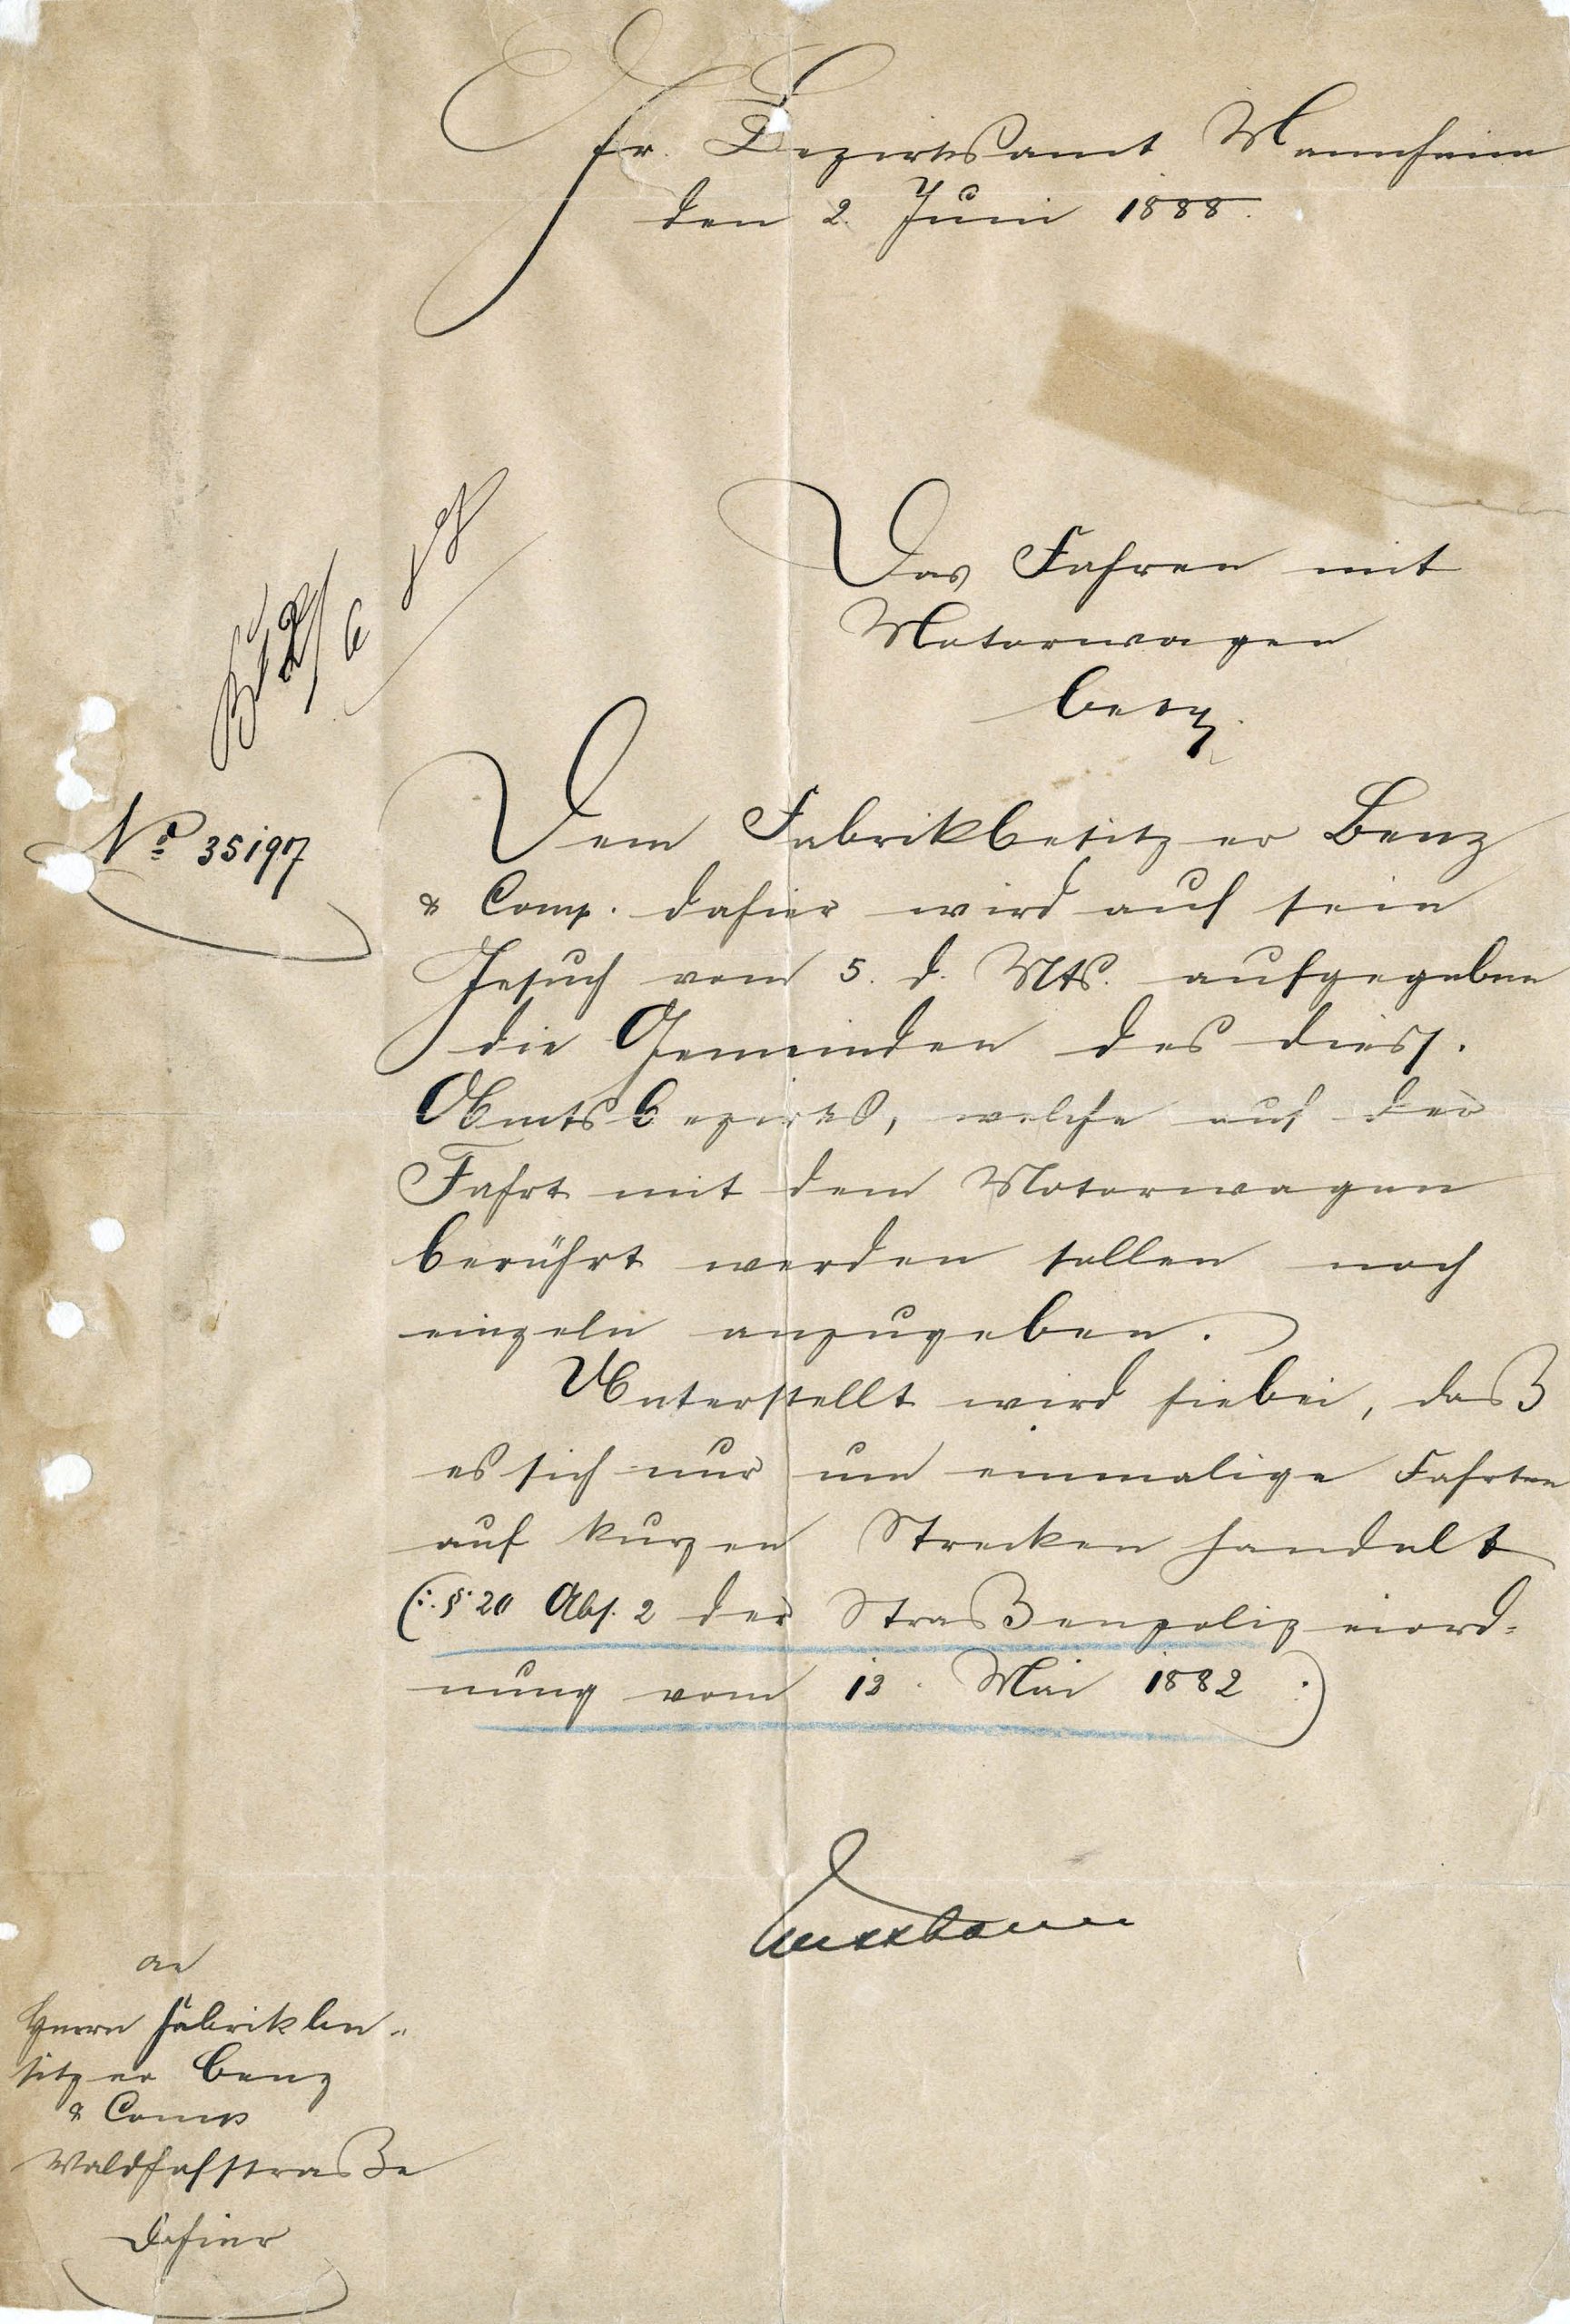 Gr. Bezirksamt Mannheim
den 2. Juni 1888.
Das Fahren mit
Motorwagen
betr.
No 35197
Dem Fabrikbesitzer Benz
& Comp. dahier wird auf sein
Gesuch vom 5. d. Mts. aufgegeben
die Gemeinden des dies.
Amtsbezirks, welche auf der
Fahrt mit dem Motorwagen
berührt werden sollen noch
einzeln anzugeben.
Unterstellt wird hiebei, daß
es sich nur um einmalige Fahrten
auf kurzen Strecken handelt
(:§ 20 Abs. 2 der Straßenpolizeiord-
nung vom 12. Mai 1882.)
an
Herrn Fabrikbe-
sitzer Benz
& Comp
Waldhofstraße
Dahier